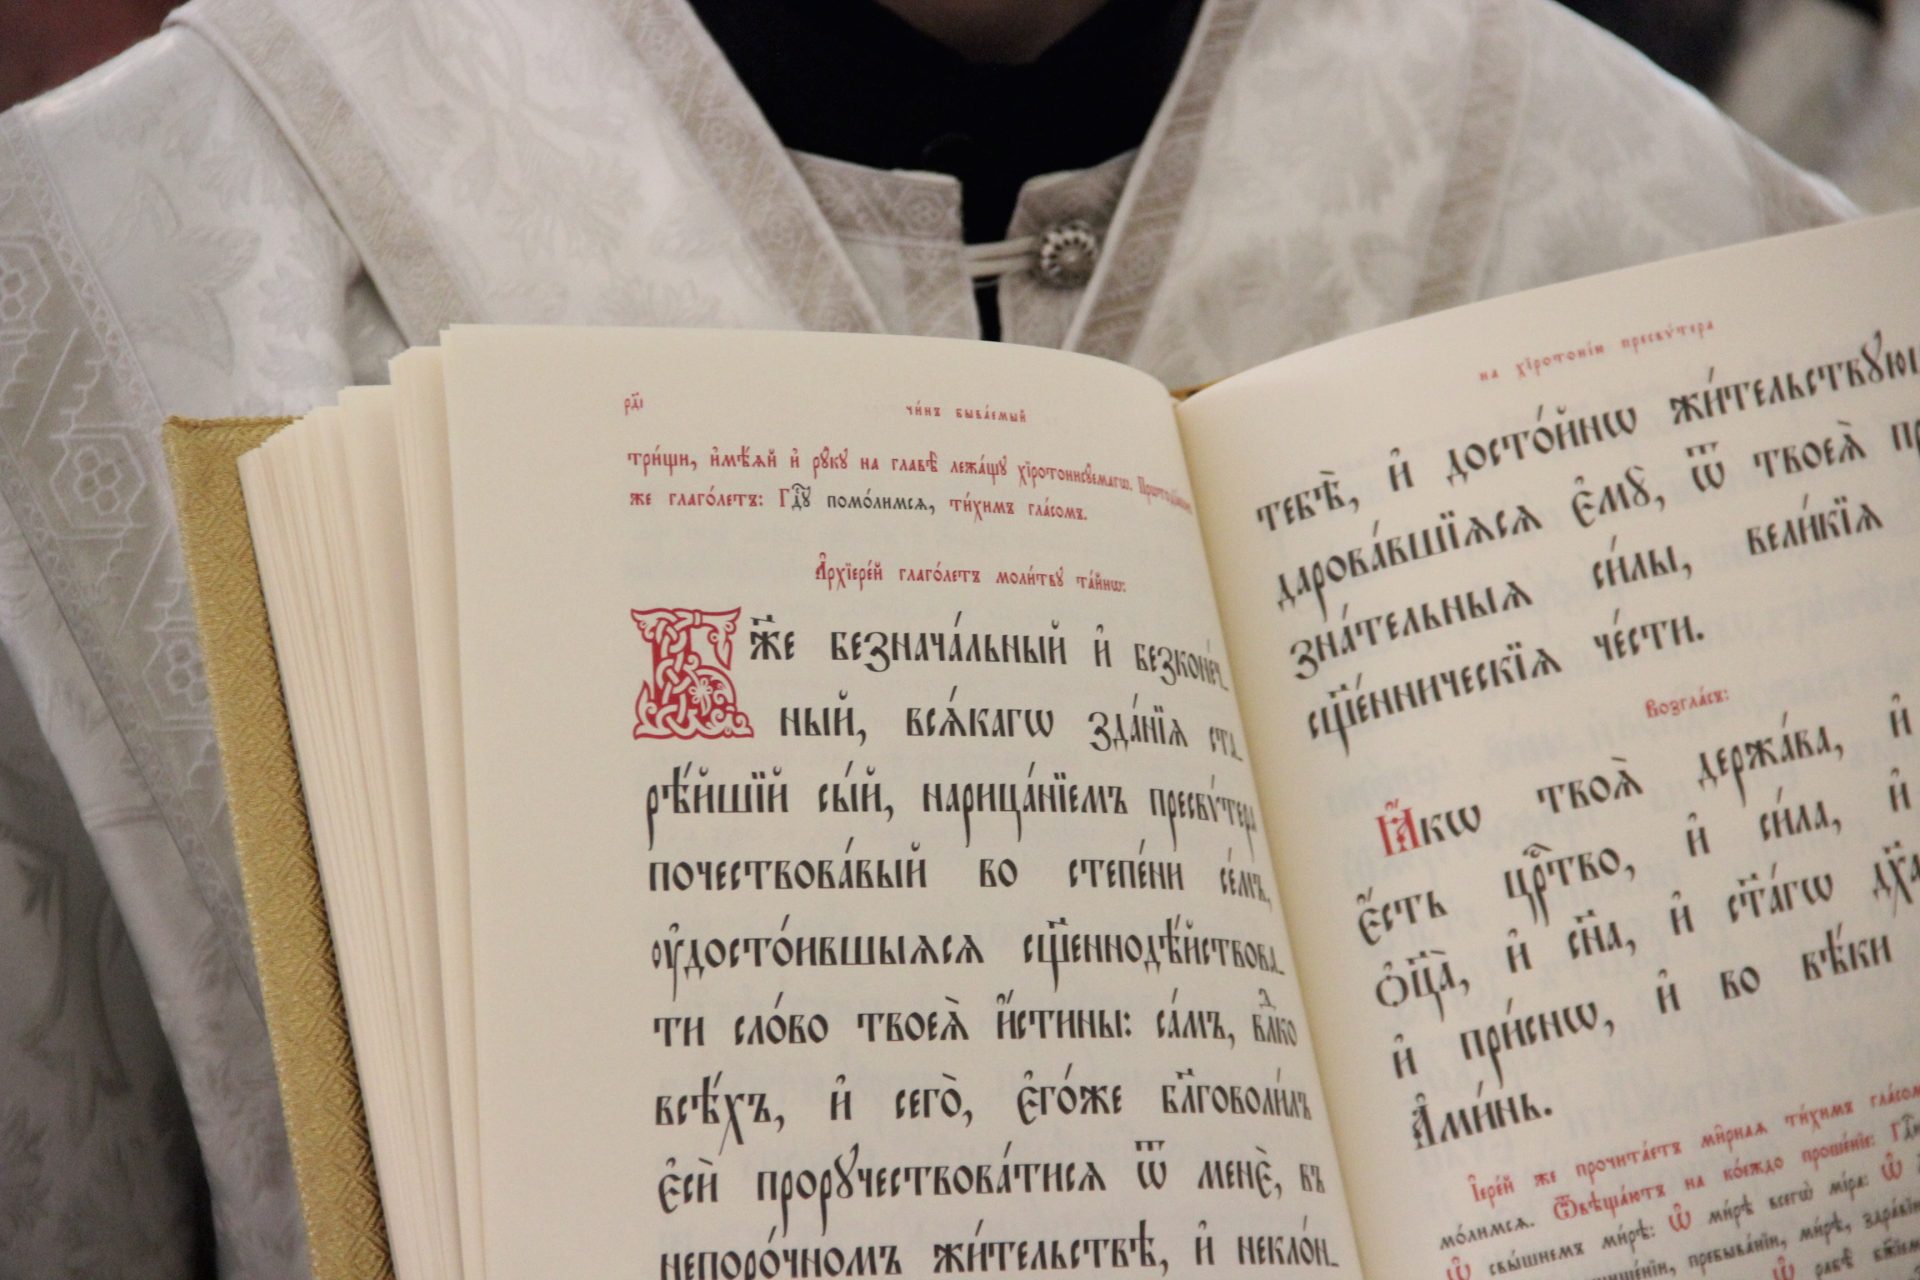 рд҃і
чи́нъ быва́емый
три́щи, и҆мѣ́ѧй и҆ рꙋкꙋ на главѣ̀ лежа́щꙋ хїротонисꙋемагѡ.
же глаго́летъ: Гдⷭ҇ꙋ помо́лимсѧ, ти́химъ гла́сомъ.
А҆рхїере́й глаго́летъ моли́твꙋ та́йнѡ:
Бж҃е безнача́льный и҆ безконе́ч-
ный, всѧ́кагѡ зда́нїѧ ста-
рѣ́йшїй сы́й, нарица́нїемъ пресвѵ́тера
почествова́вый во степе́ни се́мъ,
ᲂу҆досто́ившыѧсѧ сщ҃еннодѣ́йствова-
ти сло́во твоеѧ̀ и҆́стины: са́мъ, влⷣко
всѣ́хъ, и҆ сего̀, є҆го́же бл҃говоли́лъ
є҆сѝ прорꙋчествова́тисѧ ѿ менє̀, въ
непоро́чномъ жи́тельствѣ, и҆ некло́н-
на хїротонїи пресвѵ́тера
тебѣ̀, и҆ досто́йнѡ жи́тельствꙋю
дарова́вшїѧсѧ є҆мꙋ̀, ѿ твоеѧ̀
зна́тельныѧ си́лы, вели́кїѧ
сщ҃е́нническїѧ че́сти.
Возгла́съ:
Ꙗ҆́кѡ твоѧ̀ держа́ва, и҆
є҆́сть црⷭ҇тво, и҆ си́ла, и҆
ѻ҆ц҃а̀, и҆ сн҃а, и҆ ст҃а́гѡ дх҃а
и҆ при́снѡ, и҆ во вѣ́ки
А҆ми́нь.
І҆ере́й же прочита́етъ ми̑рнаѧ ти́химъ гла́сомъ
мо́лимсѧ. Ѿвѣща́ютъ на ко́еждо проше́нїе: Гдⷭ҇и
Ѡ҆ свы́шнемъ ми́рѣ: Ѡ҆ ми́рѣ всегѡ̀ мі́ра: Ѡ҆
пребыва́нїи, ми́рѣ, здра́вїи
Ѡ҆ рабѣ̀ бж҃їемъ